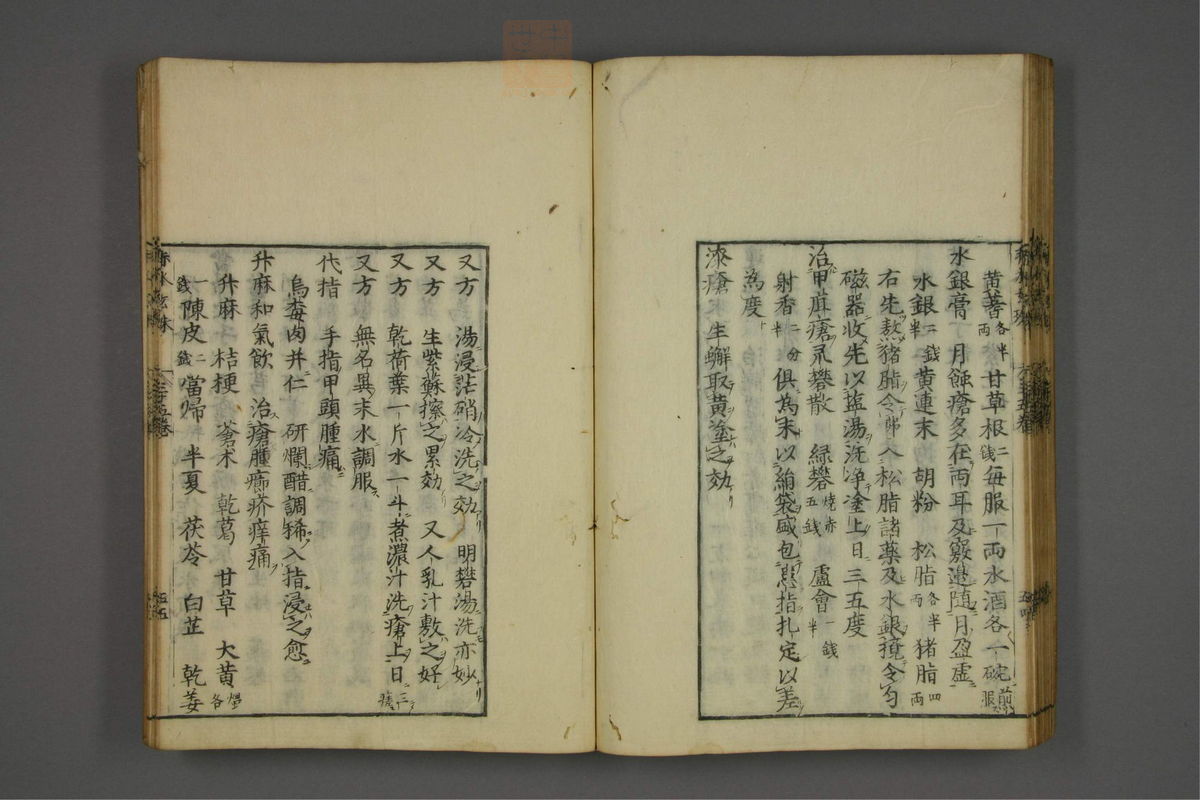 黄芪各半両甘草根二銭毎服一両水酒各一碗煎
水銀膏 月蝕瘡多在両耳及竅邊随月盈虚
水銀二銭半黄連末 胡粉 松脂各半両 猪脂四両
右先熬猪脂令 入松脂諸藥及水銀攪令匀
磁器收先以塩湯洗浄塗上日三五度
治甲疽瘡 礬散 緑礬燒赤五銭 盧會一銭半
射香二分半 俱為末以絹袋盛包患指扎定以差
為度
漆瘡 生蠏取黄塗之効
又方 湯浸芒硝冷洗之効 明礬湯洗亦妙
又方 生紫蘇擦之累効 又人乳汁敷之好
又方 乾荷葉一斤水一斗煮濃汁洗瘡上日二三
又方 無名異末水調服
代指 手指甲頭腫痛
烏梅肉并仁 研爛醋調稀入指浸之愈
升麻和氣飲 治瘡腫癤疥痒痛
升麻 桔梗 蒼术 乾葛 甘草 大黄煨各
一銭陳皮二銭當帰 半夏 茯苓 白芷 乾姜